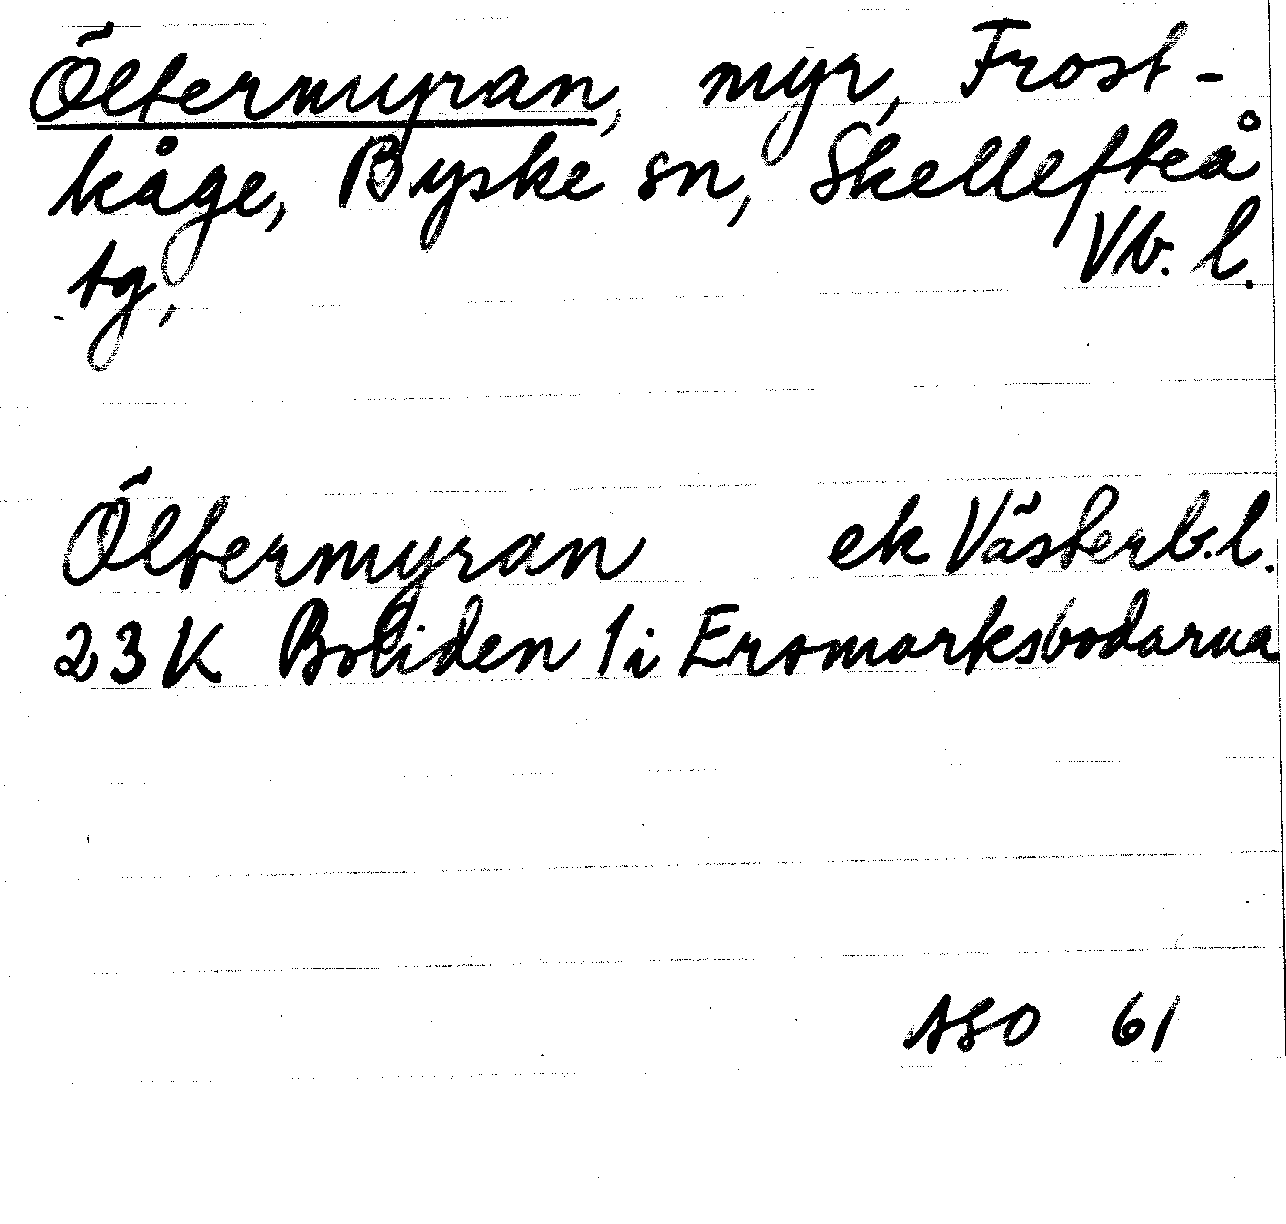 Öltermyran, myr, Frost-
kåge, Byske sn, Skellefteå
tg, Vb. l.
Öltermyran ek Västerb. l.
23 K Boliden 1 i Ersmarksbodarna
ASO 61